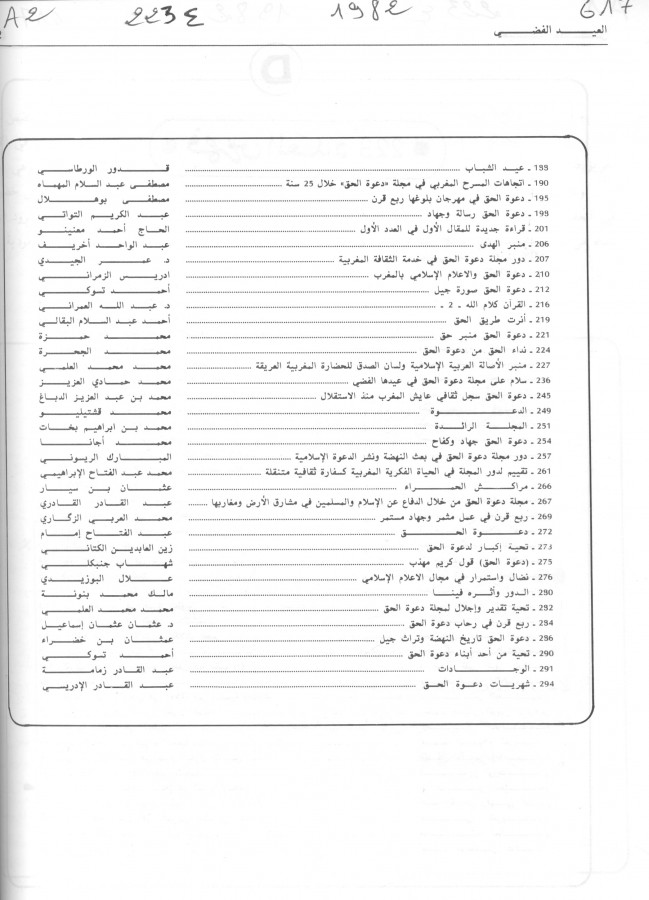 A2 223٤ 1982 617
العيد الفضي
188 ـ عيد الشباب ........ قدور الورطاسي
190 ـ اتجاهات المسرح المغربي في مجلة «دعوة الحق» خلال 25 سنة ........ مصطفى عبد السلام المهماه
195 ـ دعوة الحق في مهرجان بلوغها ربع قرن ........ مصطفى بوهلال
198 ـ دعوة الحق رسالة وجهاد ........ عبد الكريم التواتي
201 ـ قراءة جديدة للمقال الأول في العدد الأول ........ الحاج أحمد معنينو
206 ـ منبر الهدى ........ عبد الواحد أخريف
207 ـ دور مجلة دعوة الحق في خدمة الثقافة المغربية ........ د. عمر الجيدي
210 ـ دعوة الحق والاعلام الإسلامي بالمغرب ........ ادريس الزمراني
212 ـ دعوة الحق صورة جيل ........ أحمد توكي
216 ـ القرآن كلام الله ـ 2 ـ ........ د. عبد الله العمراني
219 ـ أنرت طريق الحق ........ أحمد عبد السلام البقالي
221 ـ دعوة الحق منبر حق ........ محمد حمزة
224 ـ نداء الحق من دعوة الحق ........ محمد الجحرة
227 ـ منبر الأصالة العربية الإسلامية ولسان الصدق للحضارة المغربية العريقة ........ محمد محمد العلمي
236 ـ سلام على مجلة دعوة الحق في عيدها الفضي ........ محمد حمادي العزيز
245 ـ دعوة الحق سجل ثقافي عايش المغرب منذ الاستقلال ........ محمد بن عبد العزيز الدباغ
249 ـ الدعوة ........ محمد قشتيليو
251 ـ المجلة الرائدة ........ محمد بن ابراهيم بخات
254 ـ دعوة الحق جهاد وكفاح ........ محمد أجانا
257 ـ دور مجلة دعوة الحق في بعث النهضة ونشر الدعوة الإسلامية ........ المبارك الريسوني
261 ـ تقييم لدور المجلة في الحياة الفكرية المغربية كسفارة ثقافية متنقلة ........ محمد عبد الفتاح الإبراهيمي
266 ـ مراكش الحمراء ........ عثمان بن سيار
267 ـ مجلة دعوة الحق من خلال الدفاع عن الإسلام والمسلمين في مشارق الأرض ومغاربها ........ عبد القادر القادري
269 ـ ربع قرن في عمل مثمر وجهاد مستمر ........ محمد العربي الزكاري
272 ـ دعوة الحق ........ عبد الفتاح إمام
273 ـ تحية إكبار لدعوة الحق ........ زين العابدين الكتاني
275 ـ (دعوة الحق) قول كريم مهذب ........ شهاب جنبكلي
276 ـ نضال واستمرار في مجال الاعلام الإسلامي ........ علال البوزيدي
280 ـ الدور وأثره فينا ........ مالك محمد بنونة
282 ـ تحية تقدير وإجلال لمجلة دعوة الحق ........ محمد محمد العلمي
284 ـ ربع قرن في رحاب دعوة الحق ........ د. عثمان عثمان إسماعيل
286 ـ دعوة الحق تاريخ النهضة وتراث جيل ........ عثمان بن خضراء
290 ـ تحية من أحد أبناء دعوة الحق ........ أحمد توكي
291 ـ الوجادات ........ عبد القادر زمامة
294 ـ شهريات دعوة الحق ........ عبد القادر الإدريسي